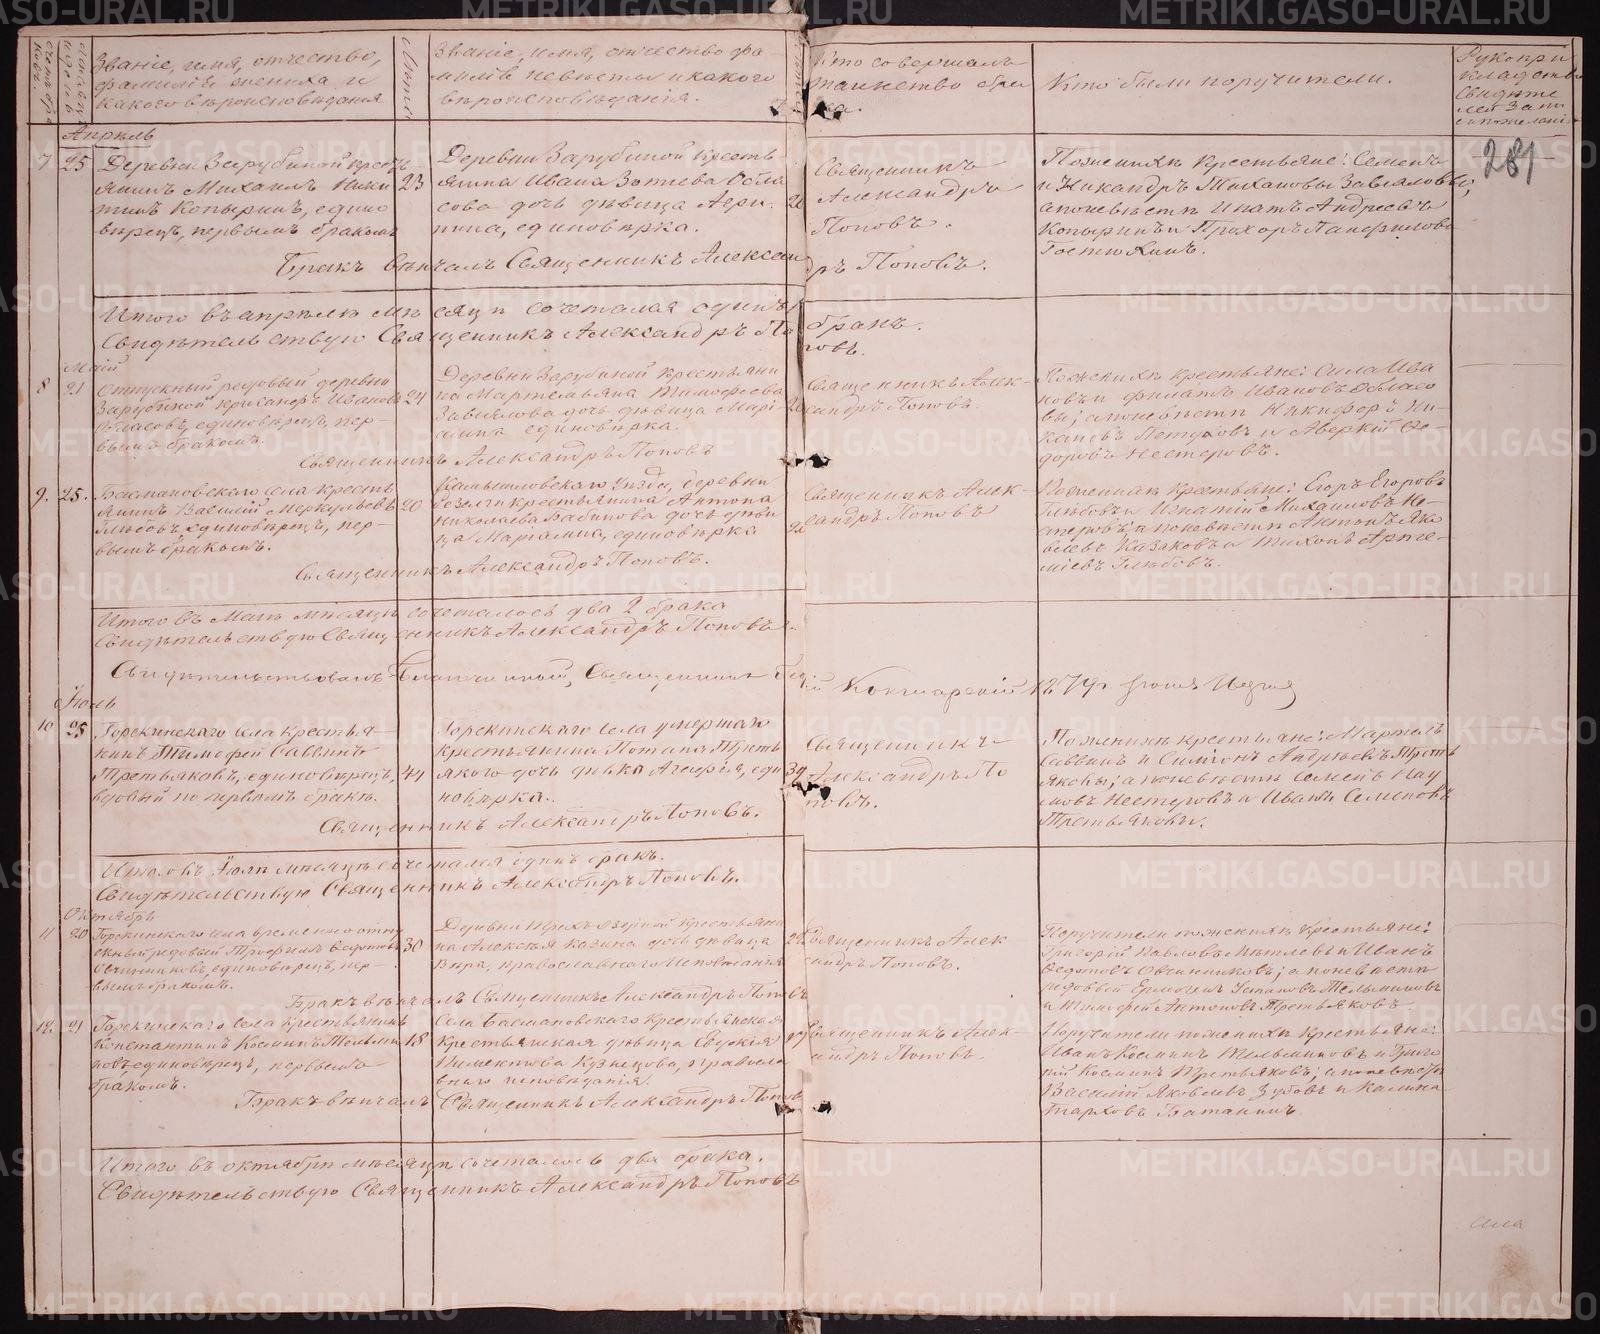 Званіе, имя, отчество,
фамилія жениха и
какого вѣроисповѣданія
Лѣта
Званіе, имя, отчество фа-
милія невѣсты и какого
вѣроисповѣданія.
Кто совершалъ
таинство бра
ка.
Кто были поручители.
Рукопри
кладство
свидѣте
лей запи
281
Апрѣль
7 25
Деревни Зарубиной кресть
янинъ Михаилъ Ники
тинъ Копыринъ, едино
вѣрецъ, первымъ бракомъ
23
Деревни Зарубиной кресть
янина Ивана Зотеева Обла
сова дочь дѣвица Агри-
пина, единовѣрка.
Священникъ
Александръ
Поповъ.
По женихѣ крестьяне: Семенъ
и Никандръ Тихановы Завьяловы,
а по невѣстѣ Ипатъ Андреевъ
Копыринъ и Прохоръ Панфиловъ
Гостюхинъ.
Бракъ вѣнчалъ Священникъ Александръ Поповъ.
Итого въ апрѣлѣ мѣсяцѣ сочетался одинъ бракъ.
Свидѣтельствую Священникъ Александръ Поповъ.
Май
8 21
Отпускный рядовый деревни
Зарубиной Хрисанфъ Ивановъ
Обласовъ, единовѣрецъ, пер-
вымъ бракомъ.
24
Деревни Зарубиной крестьяни
на Мартемьяна Тимофеева
Завьялова дочь дѣвица Марі-
анна единовѣрка.
Священникъ Алек-
сандръ Поповъ.
По женихѣ крестьяне: Сила Ива
новъ и Филатъ Ивановъ Обласо
вы; а по невѣстѣ Никифоръ Ни-
каповъ Петуховъ и Аверкій Ѳе-
доровъ Нестеровъ.
Священникъ Александръ Поповъ
9. 25.
Басмановскаго села кресть
янинъ Василій Меркурьевъ
Глѣбовъ, единовѣрецъ, пер-
вымъ бракомъ.
20
Камышловскаго уѣзда, деревни
крестьянина Антона
Николаева Бабинова дочь дѣви
ца Маріанна, единовѣрка
Священникъ Алек-
сандръ Поповъ
По женихѣ крестьяне: Егоръ Егоровъ
Глѣбовъ и Игнатій Михаиловъ Не-
стеровъ; а по невѣстѣ Антонъ Яко
влевъ Казаковъ и Тихонъ Арте-
міевъ Глѣбовъ.
Священникъ Александръ Поповъ.
Итого въ Маѣ мѣсяцѣ сочеталось два 2 брака
Свидѣтельствую Священникъ Александръ Поповъ.
Свидѣтельствовалъ Благочинный, Священникъ
1879 г
Іюль
10 25
Горскинскаго села крестья-
нинъ Тимофей Саввинъ
Третьяковъ, единовѣрецъ,
вдовый по первомъ бракѣ.
44
Горскинскаго села умершаго
крестьянина Потапа Треть
якого дочь дѣвка Агафія, еди
новѣрка.
34
Священникъ
Александръ По
повъ.
По женихѣ крестьяне: Мартелъ
Саввинъ и Симеонъ Андреевъ Треть
яковы; а по невѣстѣ Семенъ Нау
мовъ Нестеровъ и Иванъ Семеновъ
Третьяковъ.
Священникъ Александръ Поповъ.
Итого въ Іюлѣ мѣсяцѣ сочетался одинъ бракъ.
Свидѣтельствую Священникъ Александръ Поповъ.
Октябрь
11 20
Горскинскаго села временно отпу
скный рядовый Трофимъ Ѳедотовъ
Овчинниковъ, единовѣрецъ, пер-
вымъ бракомъ.
30
Деревни крестьяни
на Алексѣя Казина дочь дѣвица
Вѣра, православнаго исповѣданія
Священникъ Алек
сандръ Поповъ.
Поручители по женихѣ крестьяне:
Григорій Павловъ и Иванъ
Ѳедотовъ Овчинниковъ; а по невѣстѣ
рядовый Ермогенъ Тельминовъ
и Тимофей Антоновъ Третьяковъ.
Бракъ вѣнчалъ Священникъ Александръ Поповъ
12. 21
Горскинскаго села крестьянинъ
Константинъ Косминъ Тельми
новъ единовѣрецъ, первымъ
бракомъ.
18
Села Басмановскаго крестьянская
крестьянская дѣвица Евдокія
Пименкова Кузнецова, правосла
внаго исповѣданія.
Священникъ Алек
сандръ Поповъ
Поручители по женихѣ крестьяне:
Иванъ Косминъ Тельминовъ и Григо
рій Косминъ Третьяковъ; а по невѣстѣ
Василій Яковлевъ Зубовъ и Калина
Тарховъ Батанинъ
Бракъ вѣнчалъ Священникъ Александръ Поповъ
Итого въ октябрѣ мѣсяцѣ сочеталось два брака.
Свидѣтельствую Священникъ Александръ Поповъ